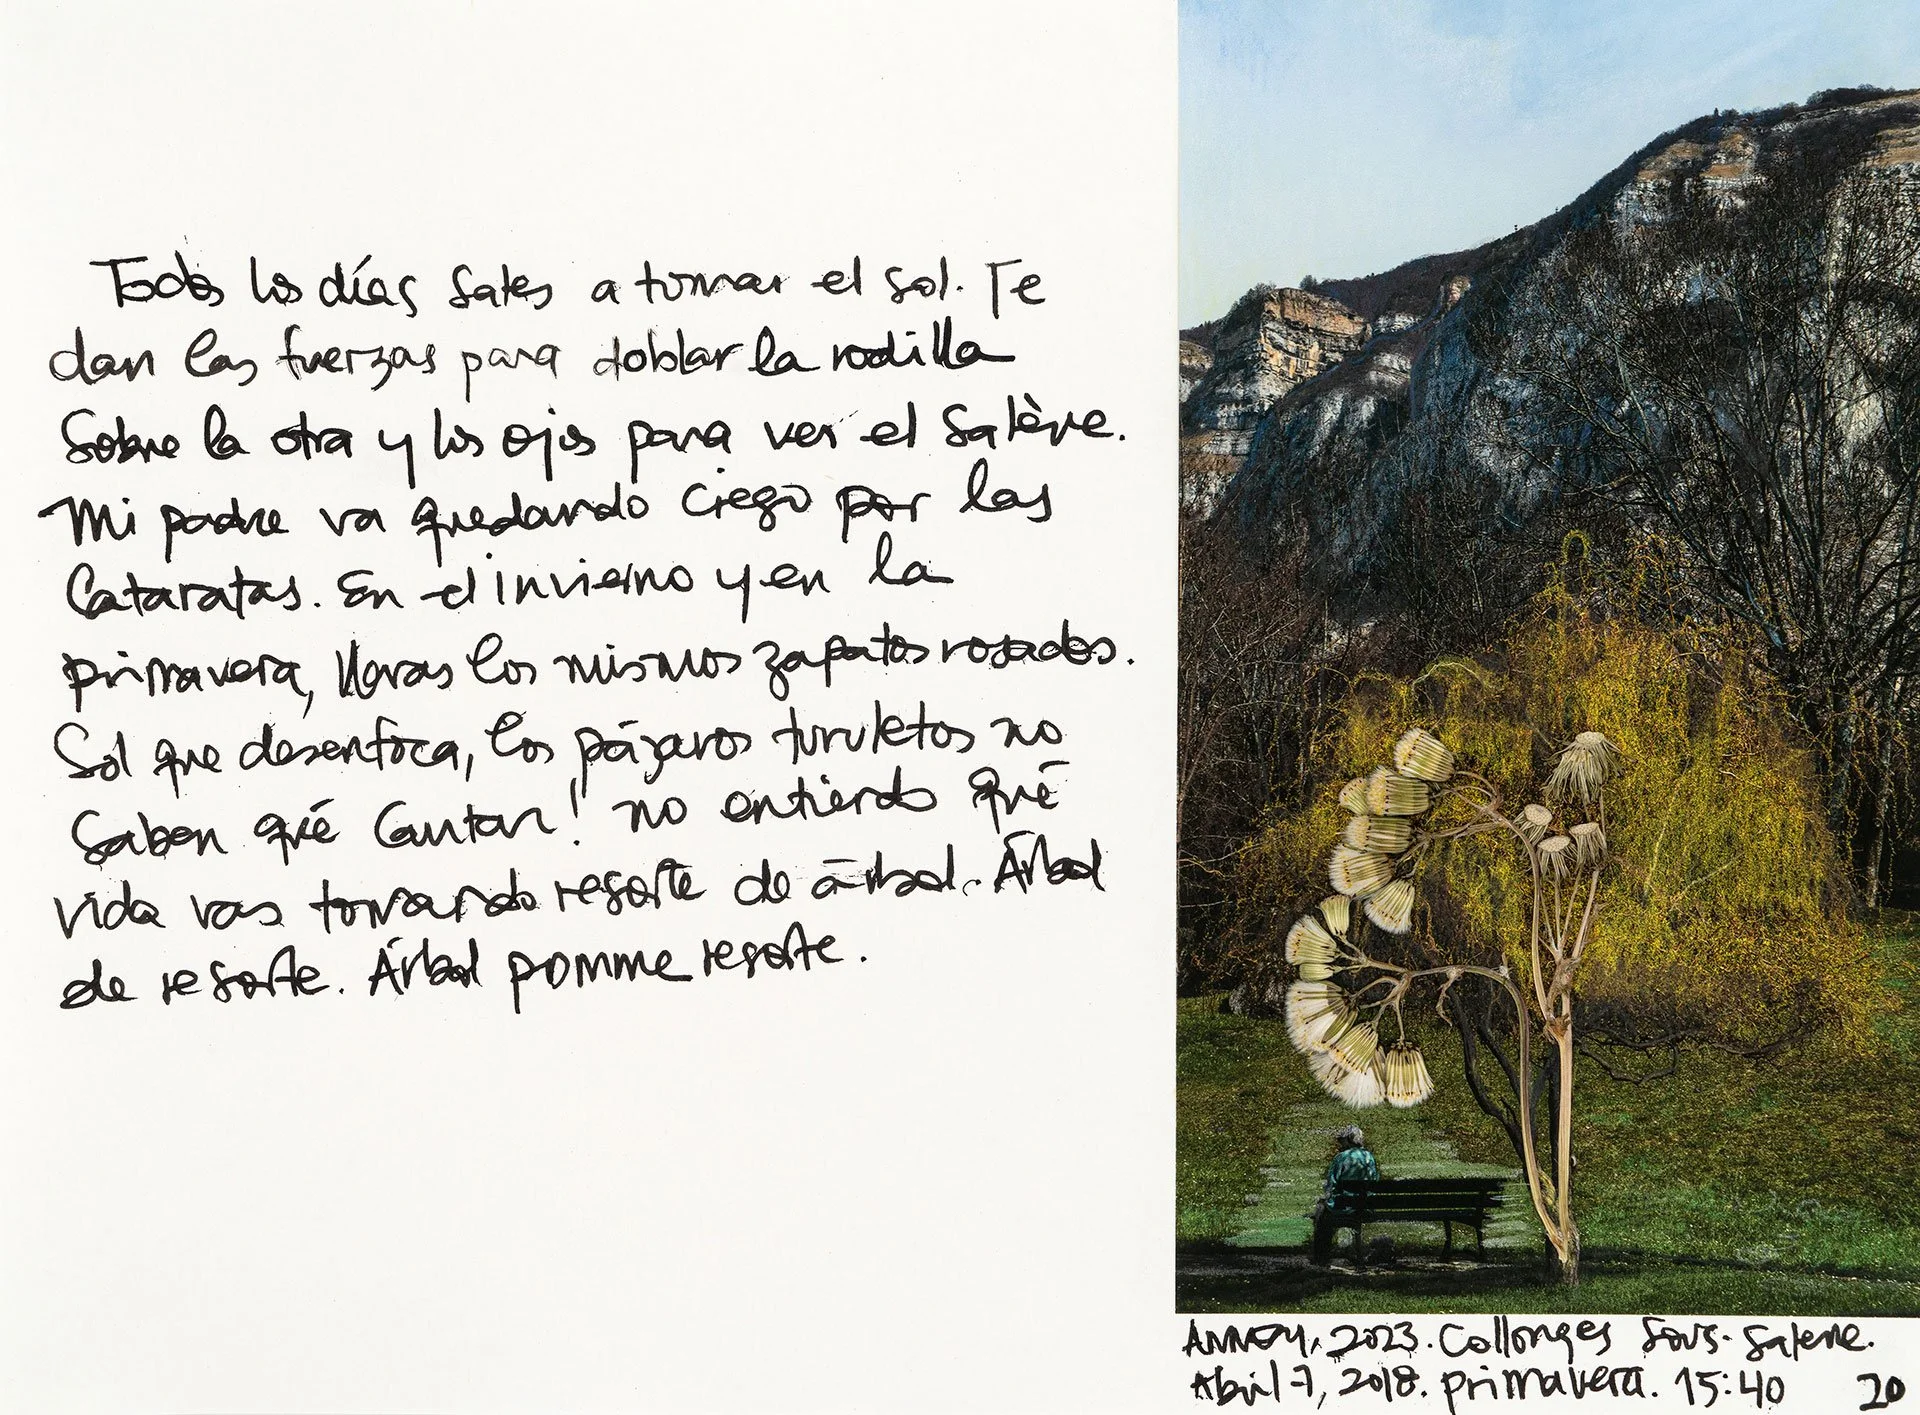 Todos los días sales a tomar el sol. Te
dan las fuerzas para doblar la rodilla
sobre la otra y los ojos para ver el Salève.
Mi padre va quedando ciego por las
cataratas. En el invierno y en la
primavera, llevas los mismos zapatos rosados.
Sol que desenfoca, los pájaros turuletos no
saben qué cantar! no entiendo qué
vida vas tomando resorte de árbol. Árbol
de resorte. Árbol pomme resorte.
2023. Collonges Sous-Saleve.
Abril 7, 2018. primavera. 15:40
20